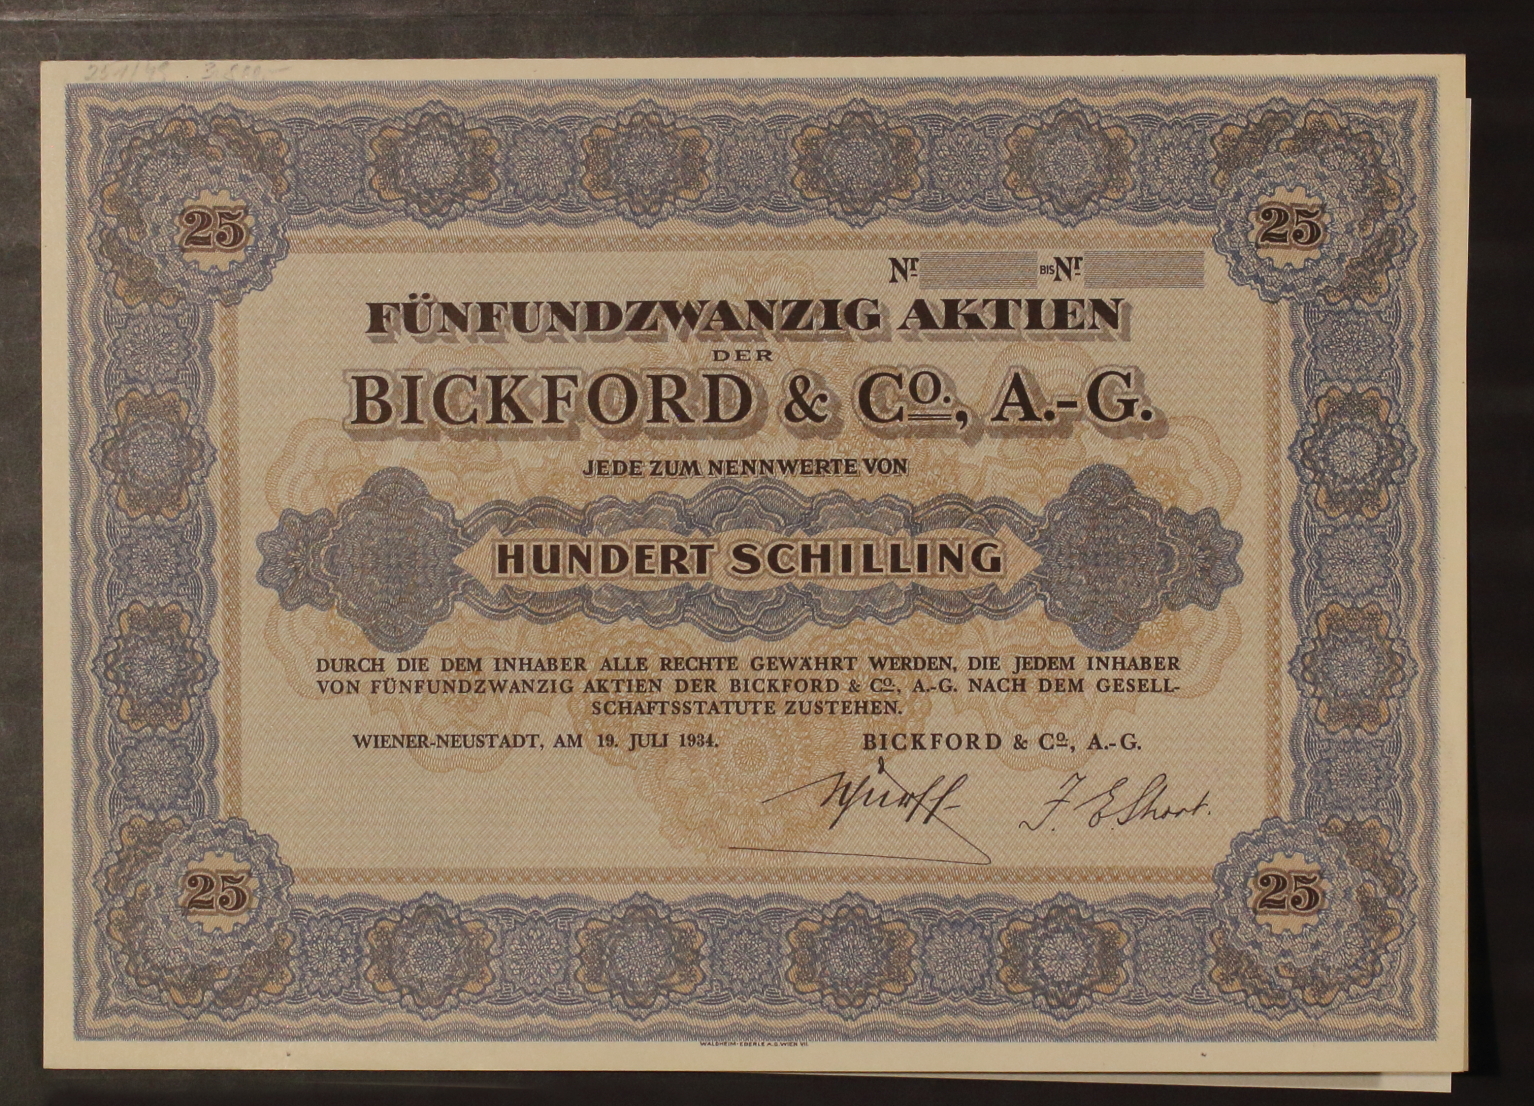 25 25
Nr. BIS Nr.
FÜNFUNDZWANZIG AKTIEN
DER
BICKFORD & Co., A.-G.
JEDE ZUM NENNWERTE VON
HUNDERT SCHILLING
DURCH DIE DEM INHABER ALLE RECHTE GEWÄHRT WERDEN, DIE JEDEM INHABER
VON FÜNFUNDZWANZIG AKTIEN DER BICKFORD & Co., A.-G. NACH DEM GESELL-
SCHAFTSSTATUTE ZUSTEHEN.
WIENER-NEUSTADT, AM 19. JULI 1934. BICKFORD & Co., A.-G.
F. E. Short.
25 25
WALDHEIM-EBERLE A.G. WIEN VII.